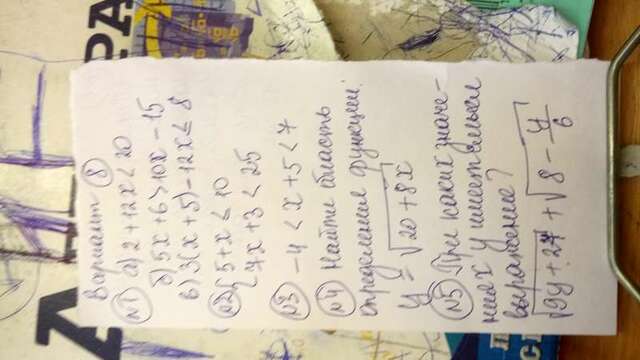 Вариант 8
№1 а) 2 + 12x < 20
б) 5x + 6 > 10x - 15
в) 3(x + 5) - 12x ≤ 8
№2 { 5 + x ≤ 10
7x + 3 < 25
№3 -4 < x + 5 < 7
№4 Найти область
определения функции:
y = √20 + 8x
№5 При каких значе-
ниях y имеет смысл
выражение?
√9y + 27 + √8 - y/6